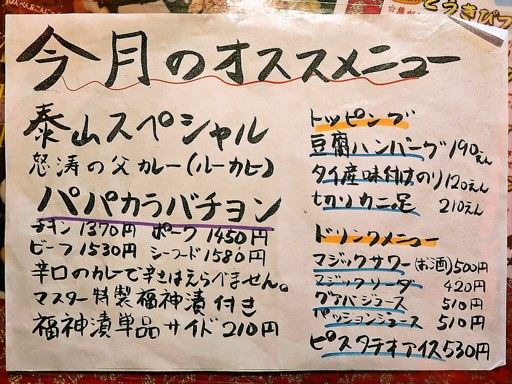 今月のオススメニュー
泰山スペシャル
怒涛の父カレー(ルーカヒ)
パパカラバチョン
チキン1370円 ポーク1450円
ビーフ1530円 シーフード1580円
辛口のカレーで辛さはえらべません。
マスター特製福神漬付き
福神漬単品サイド210円
トッピング
豆腐ハンバーグ190えん
タイ産味付けのり120えん
切りカニ足 210えん
ドリンクメニュー
マジックサワー(お酒)500円
マジックソーダー 420円
グァバジュース 510円
パッションジュース 510円
ピスタチオアイス530円